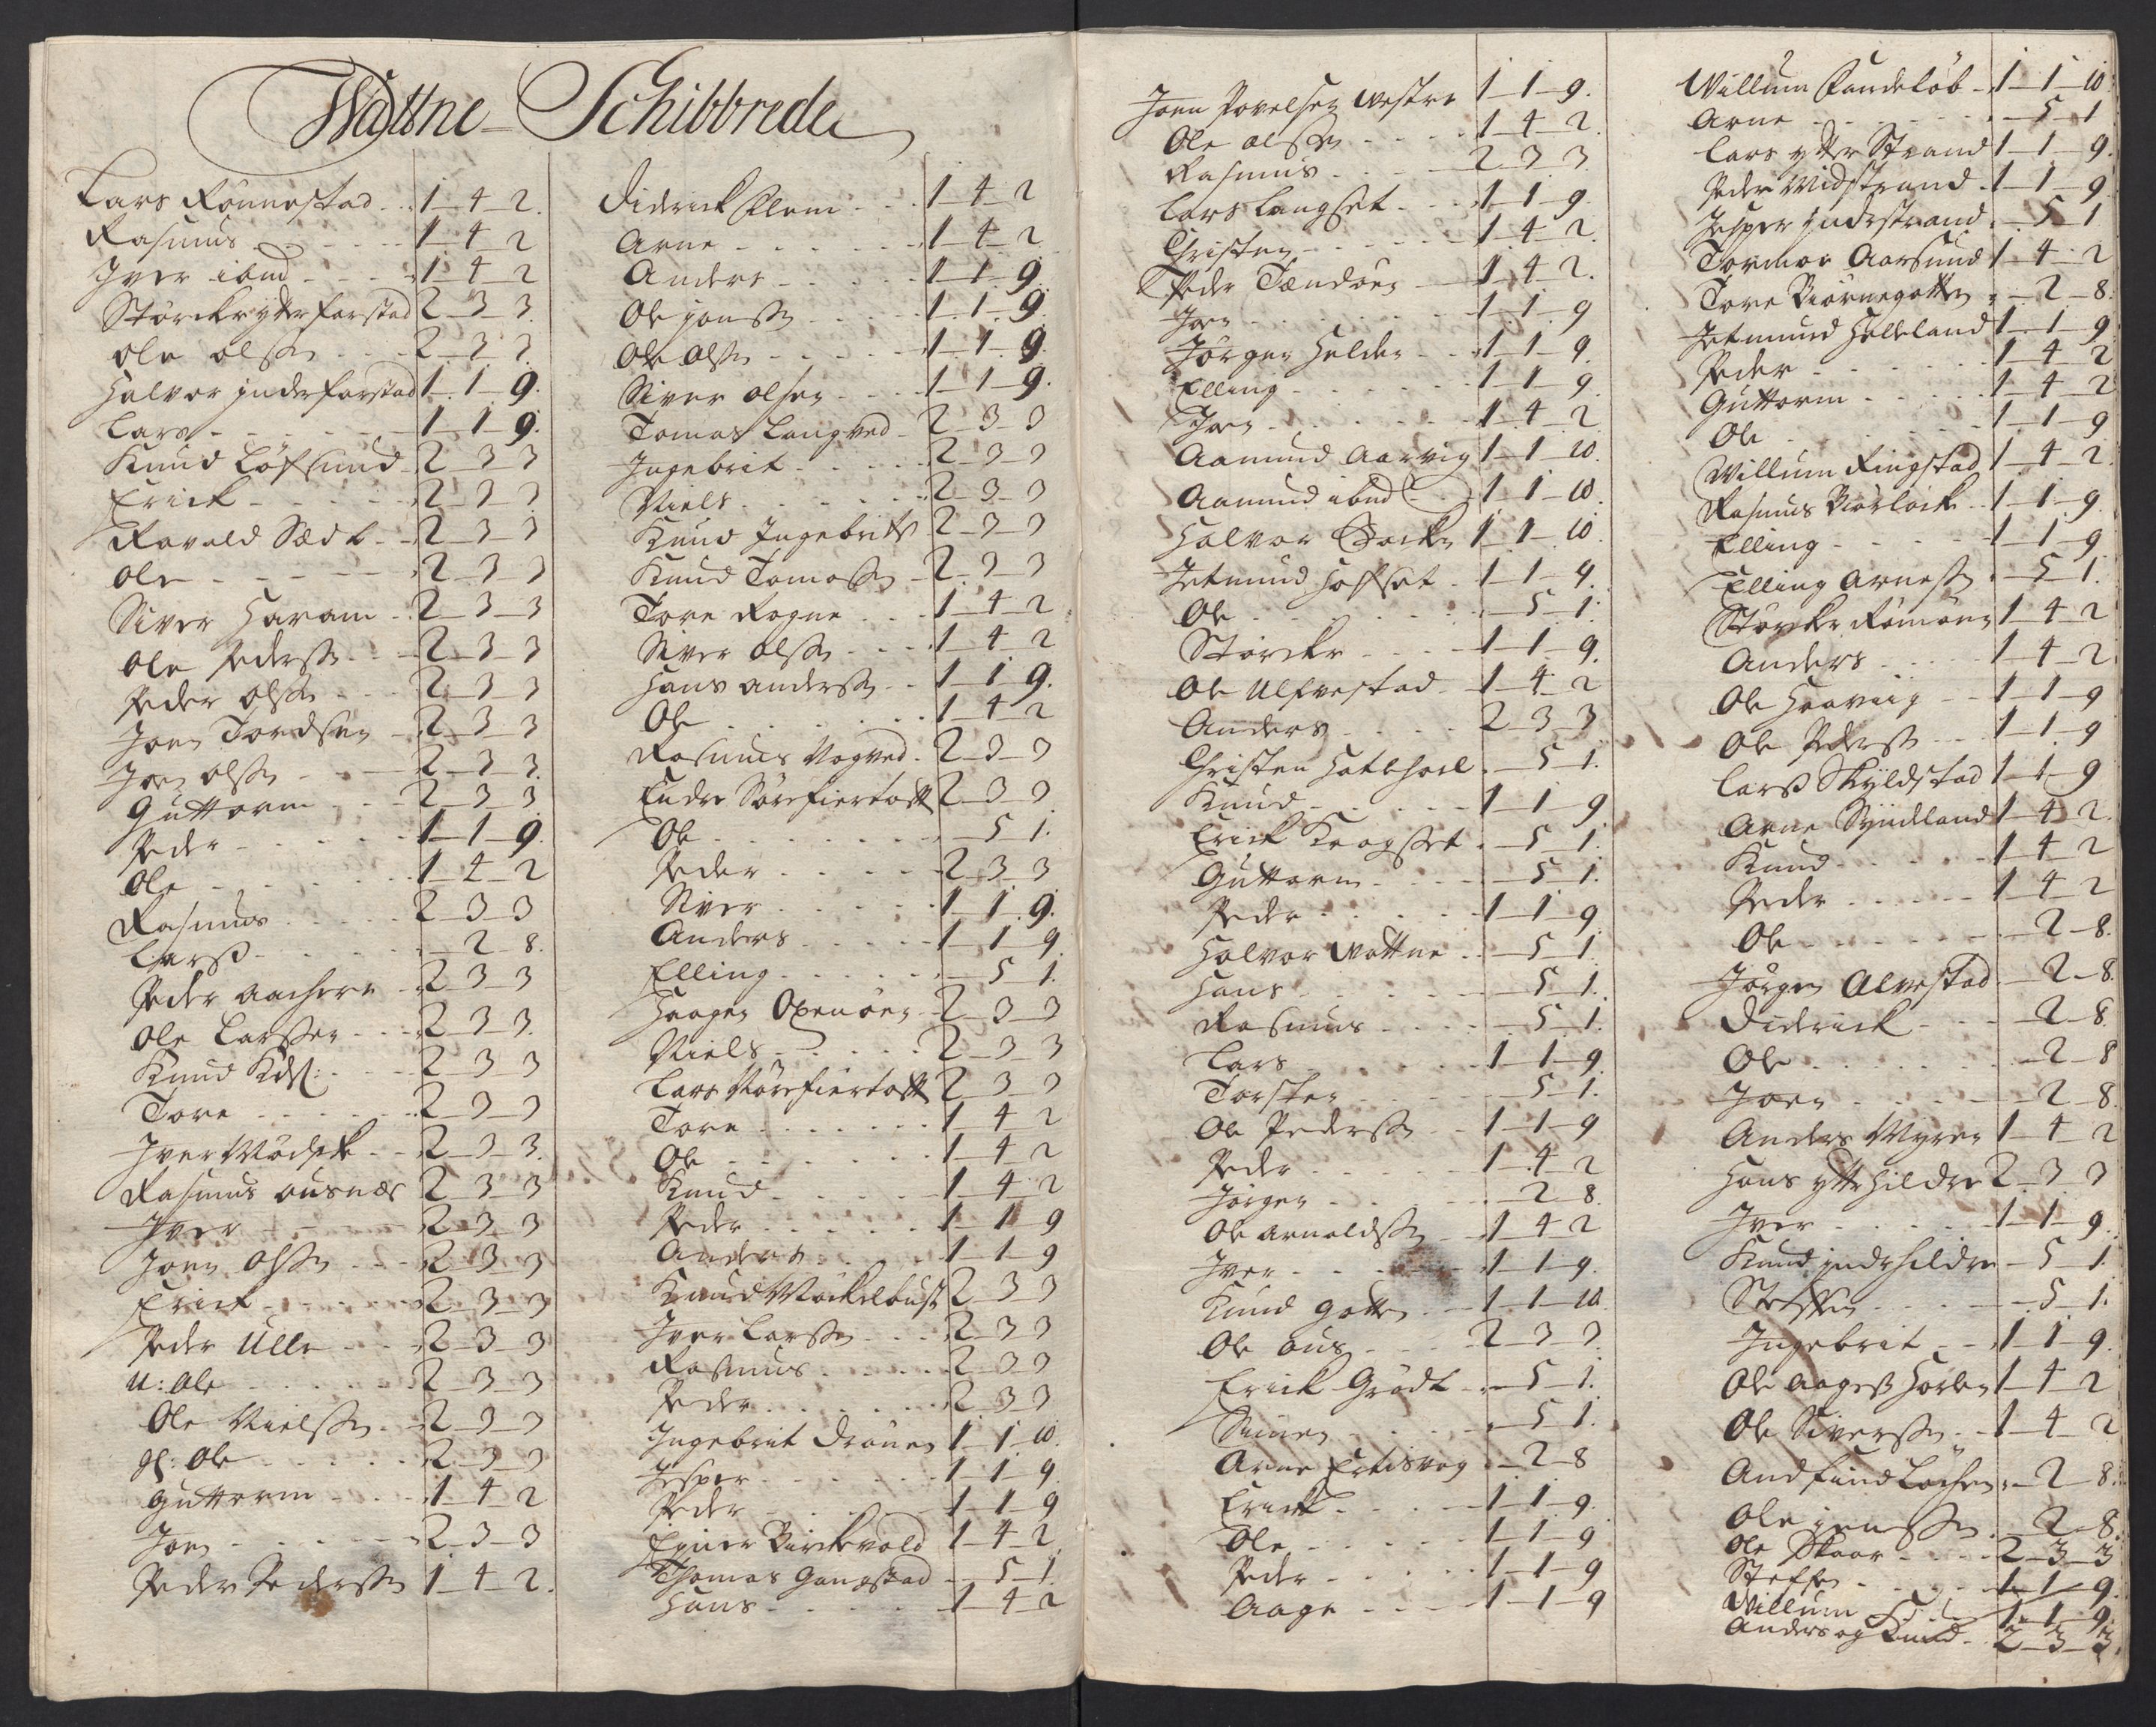 Wattne Schibbrede
Lars Rönnestad 1 4 2
Rasmus 1 4 2
Iver ibnd 1 4 2
Störcker ytterforstad 2 3 3
Ole olssen 2 3 3
Halvor inderforstad 1 1 9
Lars 1 1 9
Knud Löfsund 2 3 3
Erick 2 3 3
Ravald Sædt 2 3 3
Ole 2 3 3
Siver Haram 2 3 3
Ole Pederssen 2 3 3
Peder olssen 2 3 3
Joen Tordsen 2 3 3
Joen olssen 2 3 3
Guttorm 2 3 3
Peder 1 1 9
Ole 1 4 2
Rasmus 2 3 3
Larss 2 8
Peder Aachere 2 3 3
Ole Larssen 2 3 3
Knud 2 3 3
Tore 2 3 3
Iver 2 3 3
Rasmus ousnæs 2 3 3
Iver 2 3 3
Joen olssen 2 3 3
Erick 2 3 3
Peder Ulle 2 3 3
U: Ole 2 3 3
Ole Nielssen 2 3 3
gl: Ole 2 3 3
Guttorm 1 4 2
Joen 2 3 3
Peder Pederssen 1 4 2
Didrick Flem 1 4 2
Arne 1 4 2
Anders 1 1 9
Ole jonssen 1 1 9
Ole Olssen 1 1 9
Siver olsen 1 1 9
Tomas Langved 2 3 3
Ingebrit 2 3 3
Niels 2 3 3
Knud Ingebrits 2 3 3
Knud Tomassen 2 3 3
Tore Rogne 1 4 2
Siver olssen 1 4 2
Hans anderssen 1 1 9
Ole 1 4 2
Rasmus Vogved 2 3 3
Endre Sörefiertoft 2 3 3
Ole 5 1
Peder 2 3 3
Siver 1 1 9
Anders 1 1 9
Elling 5 1
Haagen Oxenöen 2 3 3
Niels 2 3 3
Lars Nörefiertoft 2 3 3
Tore 1 4 2
Ole 1 4 2
Knud 1 4 2
Peder 1 1 9
Anders 1 1 9
Knud Möckelbust 2 3 3
Iver Larssen 2 3 3
Rasmus 2 3 3
Peder 2 3 3
Ingebrit Dröuen 1 1 10
Jesper 1 1 9
Peder 1 1 9
Birckevold 1 4 2
Thomas Gangstad 5 1
Hans 1 4 2
Joen Povelsen Westre 1 1 9
Ole olssen 1 4 2
Rasmus 2 3 3
Lars Langset 1 1 9
Christen 1 4 2
Peder Tændöen 1 4 2
Joen 1 1 9
Jörgen Helden 1 1 9
Elling 1 1 9
Joen 1 4 2
Aamund Aarvig 1 1 10
Aamund ibnd 1 1 10
Halvor 1 1 10
Jetmund Hofset 1 1 9
Ole 5 1
Störcker 1 1 9
Ole Ulfvestad 1 4 2
Anders 2 3 3
Christen Hatlehoel 5 1
Knud 1 1 9
Erick Krogset 5 1
Guttorm 5 1
Peder 1 1 9
Halvor Wattne 5 1
Hans 5 1
Rasmus 5 1
Lars 1 1 9
Torsten 5 1
Ole Pederssen 1 1 9
Peder 1 4 2
Jörgen 2 8
Ole Arnoldssen 1 4 2
Iver 1 1 9
Knud Gotten 1 1 10
Ole ous 2 3 3
Erick Grödt 5 1
5 1
Arne Ertisvog 2 8
Erick 1 1 9
Ole 1 1 9
Peder 1 1 9
Aage 1 1 9
Willum Sundelöb 1 1 10
Arne 5 1
Lars ytter Strand 1 1 9
Peder Midstrand 1 1 9
Jesper Inderstrand 5 1
Tormoe Aarsund 1 4 2
Tore Biörnegotten 2 8
Jetmund Helleland 1 1 9
Peder 1 4 2
Guttorm 1 4 2
Ole 1 1 9
Willum Ringstad 1 4 2
Rasmus Biörlöck 1 1 9
Elling 1 1 9
Elling Arnessen 5 1
Störcker Römöen 1 4 2
Anders 1 4 2
Ole Haavig 1 1 9
Ole Pederss 1 1 9
Larss Skyldstad 1 1 9
Arne Syndland 1 4 2
Knud 1 4 2
Peder 1 4 2
Ole 2 8
Jörgen Alvestad 2 8
Diderick 2 8
Ole 2 8
Joen 2 8
Anders Myren 1 4 2
Hans ytterhildre 2 3 3
Iver 1 1 9
Knud inderhildre 5 1
Steffen 5 1
Ingebrit 1 1 9
Ole Aagess 1 4 2
Ole Siverssen 1 4 2
Andfind Löchen 2 8
Ole jenssen 2 8
Ole Skaar 2 3 3
Steffen 1 1 9
Willum 1 1 9
Anders og Knud 2 3 3